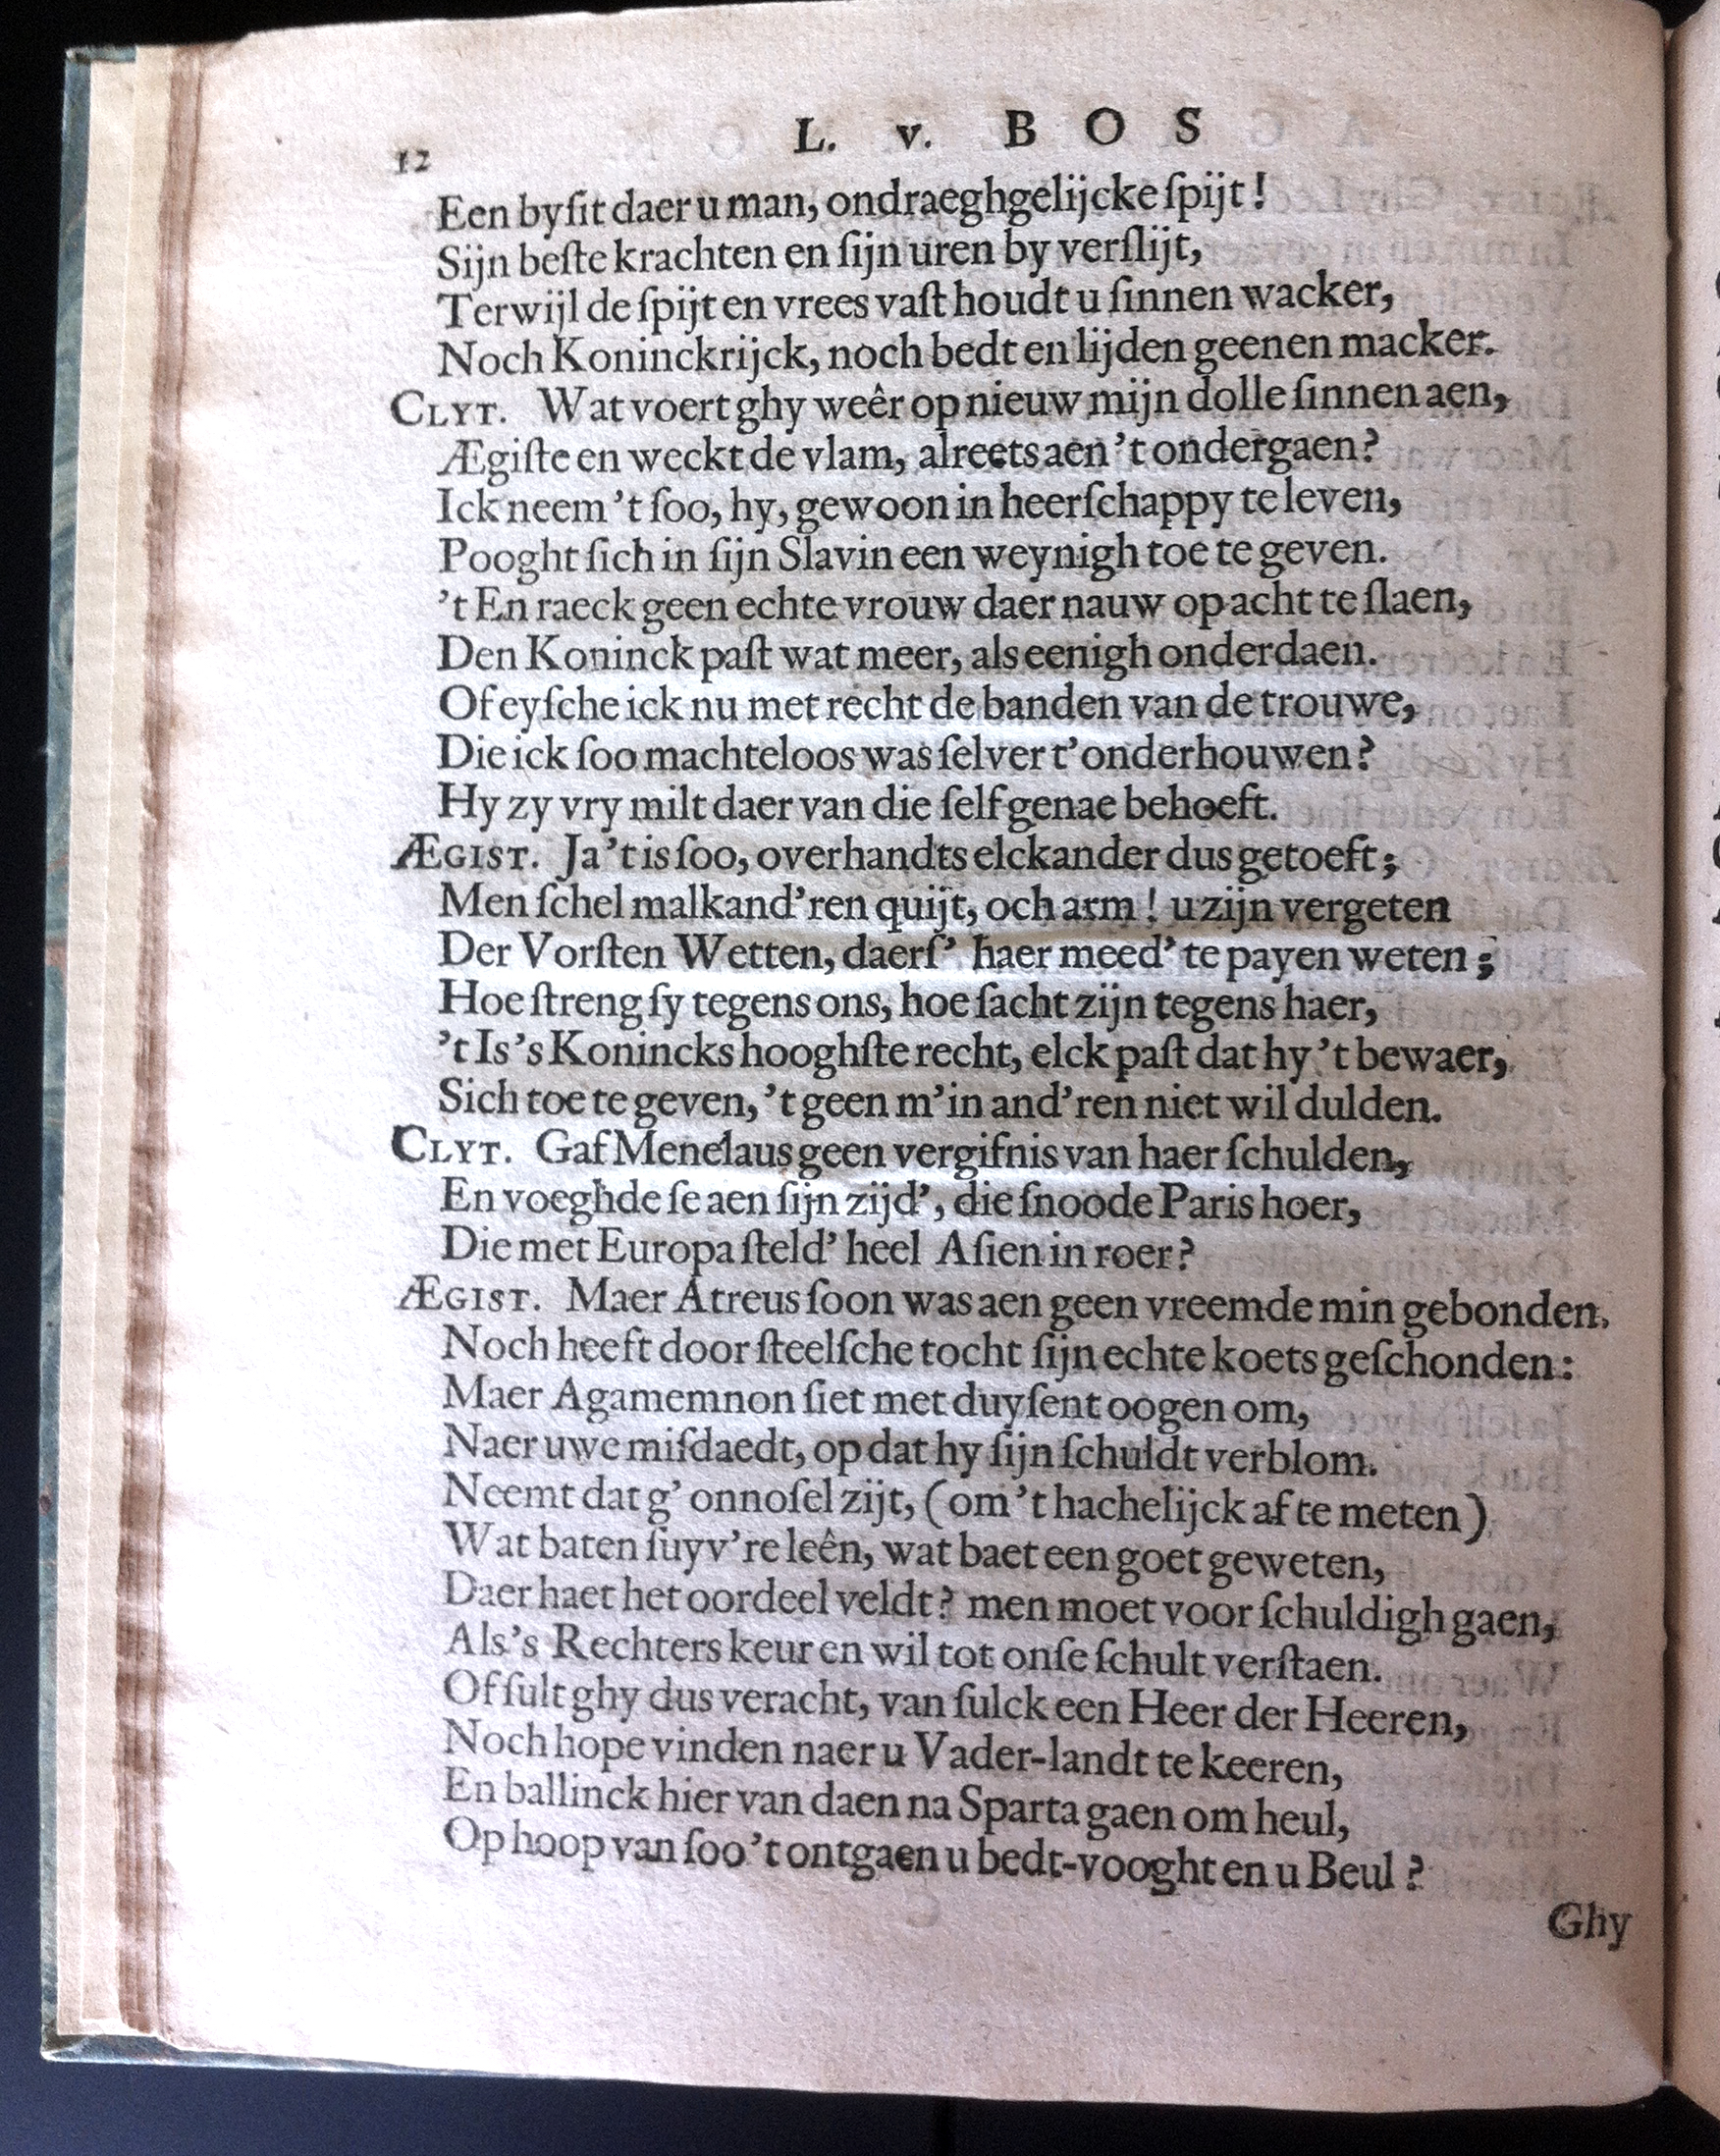 12
L. v. B O S
Een byſit daer u man, ondraeghgelijcke ſpijt!
Sijn beſte krachten en ſijn uren by verſlijt,
Terwijl de ſpijt en vrees vaſt houdt u ſinnen wacker,
Noch Koninckrijck, noch bedt en lijden geenen macker.
CLYT. Wat voert ghy weêr op nieuw mijn dolle ſinnen aen,
Ægiſte en weckt de vlam, alreets aen 't ondergaen?
Ick neem 't ſoo, hy, gewoon in heerſchappy te leven,
Pooght ſich in ſijn Slavin een weynigh toe te geven.
't En raeck geen echte vrouw daer nauw op acht te ſlaen,
Den Koninck paſt wat meer, als eenigh onderdaen.
Of eyſche ick nu met recht de banden van de trouwe,
Die ick ſoo machteloos was ſelver t'onderhouwen?
Hy zy vry milt daer van die ſelf genae behoeft.
ÆGIST. Ja 't is ſoo, overhandts elckander dus getoeft;
Men ſchel malkand'ren quijt, och arm! u zijn vergeten
Der Vorſten Wetten, daerſ' haer meed' te payen weten;
Hoe ſtreng ſy tegens ons, hoe ſacht zijn tegens haer,
't Is 's Konincks hooghſte recht, elck paſt dat hy 't bewaer,
Sich toe te geven, 't geen m'in and'ren niet wil dulden.
CLYT. Gaf Menelaus geen vergifnis van haer ſchulden,
En voeghde ſe aen ſijn zijd', die ſnoode Paris hoer,
Die met Europa ſteld' heel Aſien in roer?
ÆGIST. Maer Atreus ſoon was aen geen vreemde min gebonden.
Noch heeft door ſteelſche tocht ſijn echte koets geſchonden:
Maer Agamemnon ſiet met duyſent oogen om,
Naer uwe miſdaedt, op dat hy ſijn ſchuldt verblom.
Neemt dat g' onnoſel zijt, (om 't hachelijck af te meten)
Wat baten ſuyv're leên, wat baet een goet geweten,
Daer haet het oordeel veldt? men moet voor ſchuldigh gaen,
Als 's Rechters keur en wil tot onſe ſchult verſtaen.
Of ſult ghy dus veracht, van ſulck een Heer der Heeren,
Noch hope vinden naer u Vader-landt te keeren,
En ballinck hier van daen na Sparta gaen om heul,
Op hoop van ſoo 't ontgaen u bedt-vooght en u Beul?
Ghy